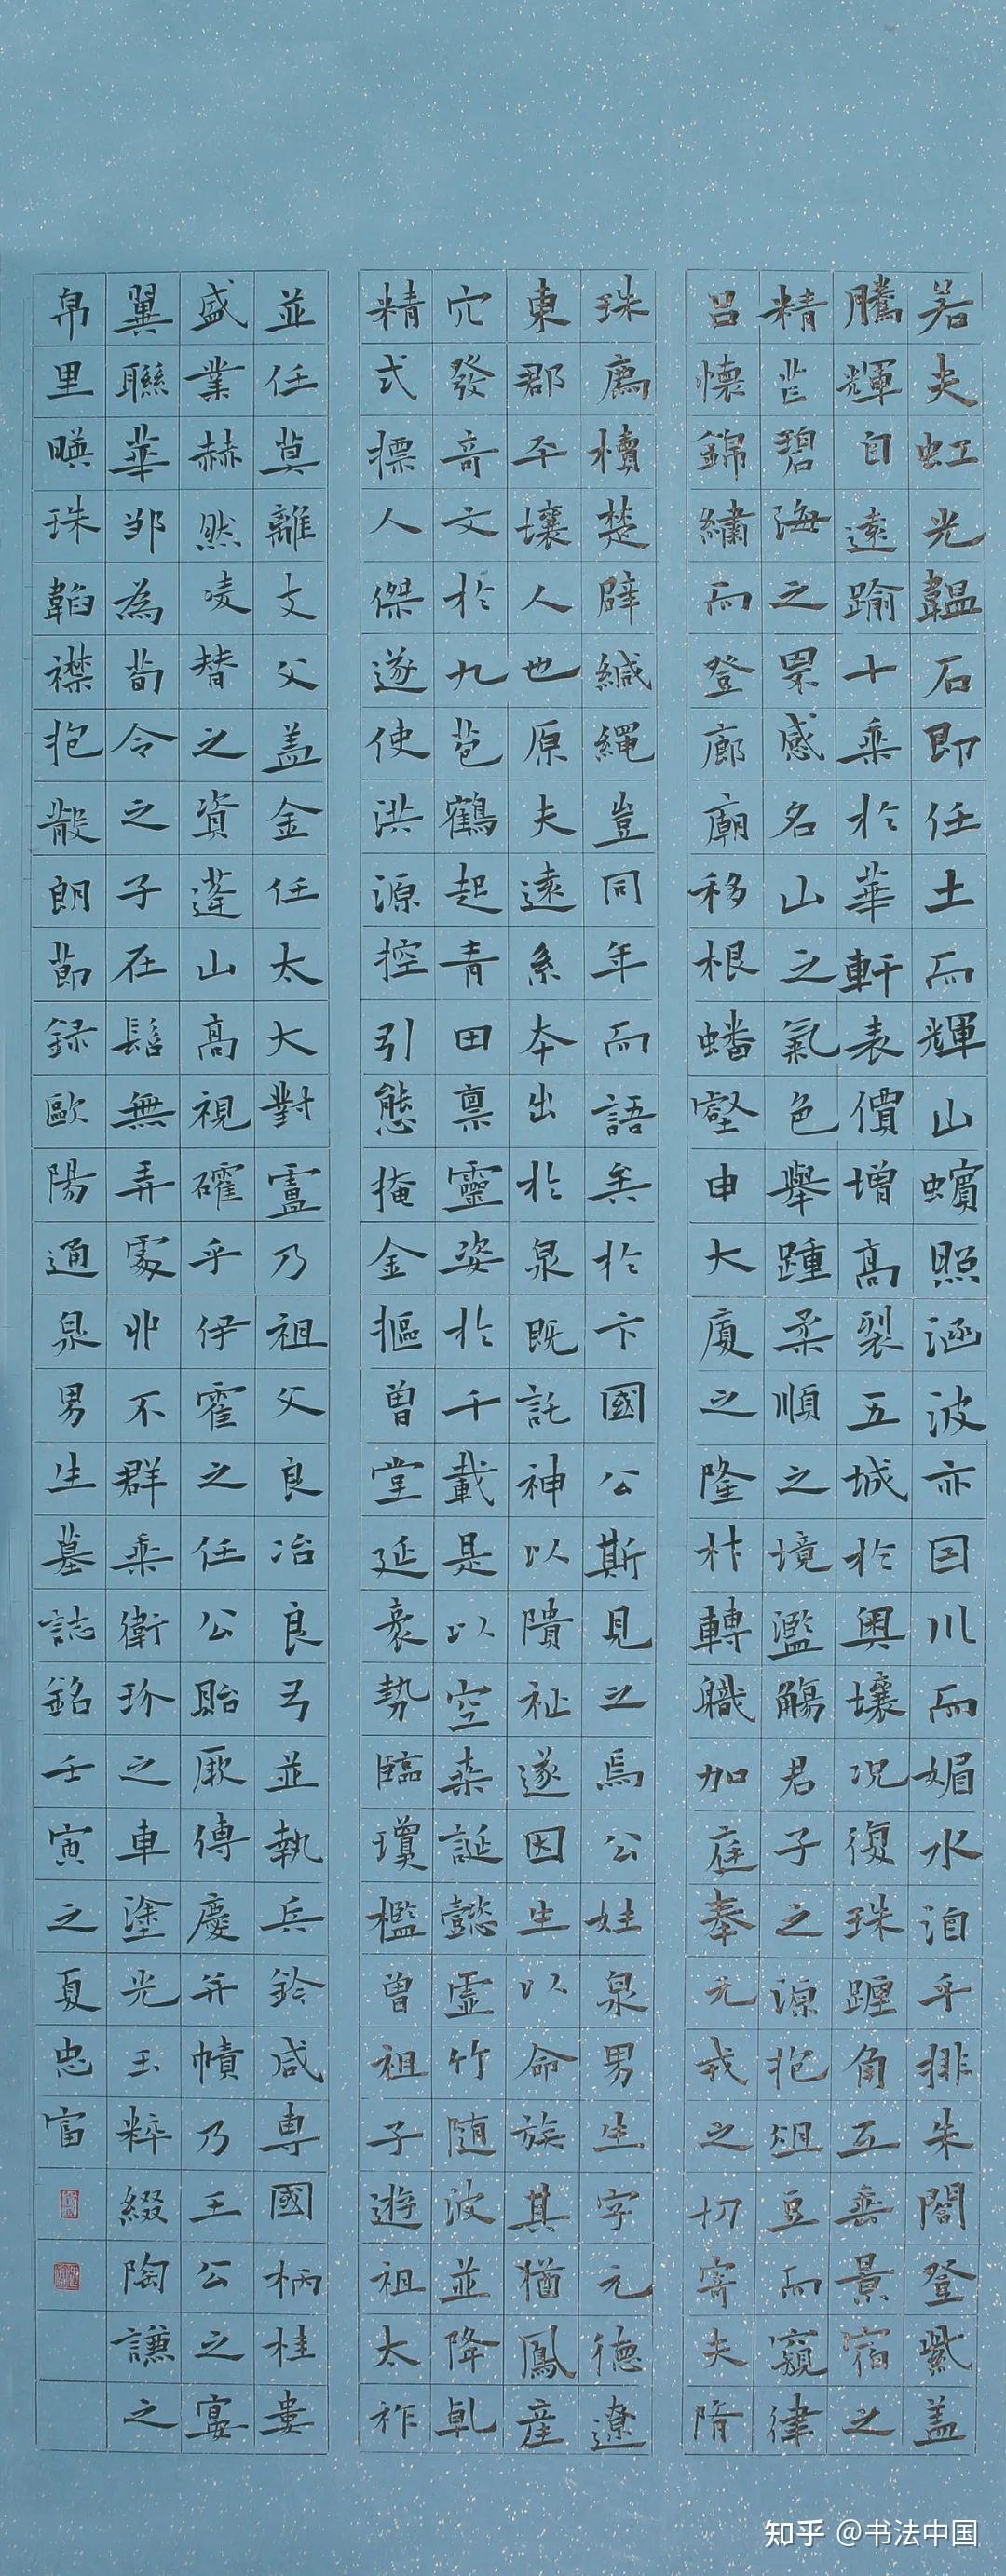 若夫虹光韞石即任土而輝山蠙照涵波亦因川而媚水洎乎排朱閤登紫盖
騰輝自遠踰十乘於華軒表價增高裂五城於奥壤况復珠躔角互垂景宿之
精芒碧海之杲感名山之氣色舉踵柔順之境濫觴君子之源抱俎豆而窺律
吕懷錦繡而登廊廟移根蟠壑申大廈之隆材轉職加庭奉元戎之切寄夫隋
珠薦櫝楚辟緘繩豈同年而語矣於卞國公斯見之焉公姓泉男生字元德遼
東郡平壤人也原夫遠系本出於泉既託神以隤祉遂因生以命族其猶鳳産
穴發奇文於九苞鶴起青田禀靈姿於千載是以空桒誕懿虛竹随波並降乹
精式摽人傑遂使洪源控引態掩金摳曽堂延袤勢臨瓊檻曽祖子遊祖太祚
並任莫離支父盖金任太大對盧乃祖父良冶良弓並執兵鈐咸專國柄桂婁
盛業赫然凌替之資蓬山高視確乎伊霍之任公貽厥傳慶弁幘乃王公之宴
翼聯華邹為荀令之子在髫無弄處丱不群乘衛玠之車塗光玉粹綴陶謙之
帛里暎珠韜襟抱散朗 節録歐陽通泉男生墓誌銘 壬寅之夏忠富
知乎 @书法中国